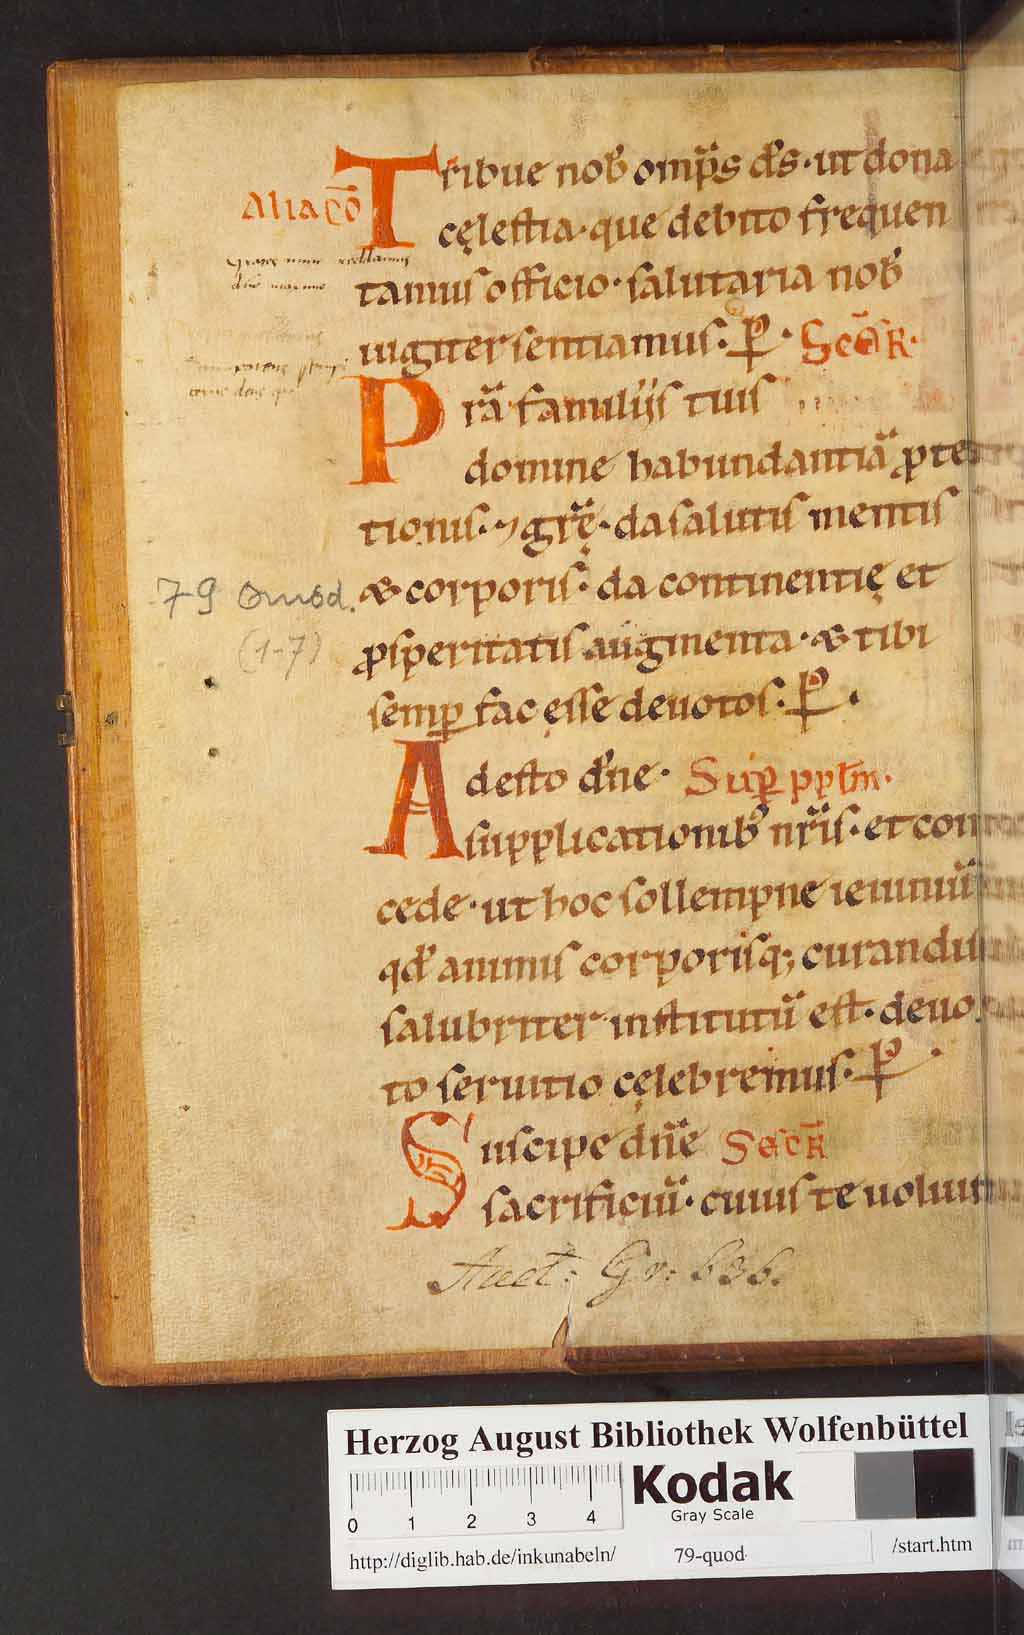 Tribue nob̄ omp̄s d̄s · ut dona
Alia cō
cęlestia · que debito frequen
tamus officio · salutaria nob̄
iugiter sentiamus · P · Secr̄ ·
Prā famulijs tuis
domine habundantiā ꝓtec
tionis · ⁊ grę̄ · da salutis mentis
& corporis · da continentię et
ꝓsperitatis augmenta · & tibi
semꝑ fac esse deuotos · P ·
Adesto dn̄e · Suꝑ ppl̄m ·
supplicationib; nr̄is · et con
cede · ut hoc sollempne ieiuniū
qd̄ animis corporisq; curandis
salubriter institutū est · deuo
to seruitio cęlebremus · P ·
Suscipe dn̄e Secr̄
sacrificiū · cuius te uoluisti
79 Quod.
(1-7)
Auct: Gr: 636.
Herzog August Bibliothek Wolfenbüttel
0 1 2 3 4
Kodak
Gray Scale
http://diglib.hab.de/inkunabeln/ 79-quod /start.htm